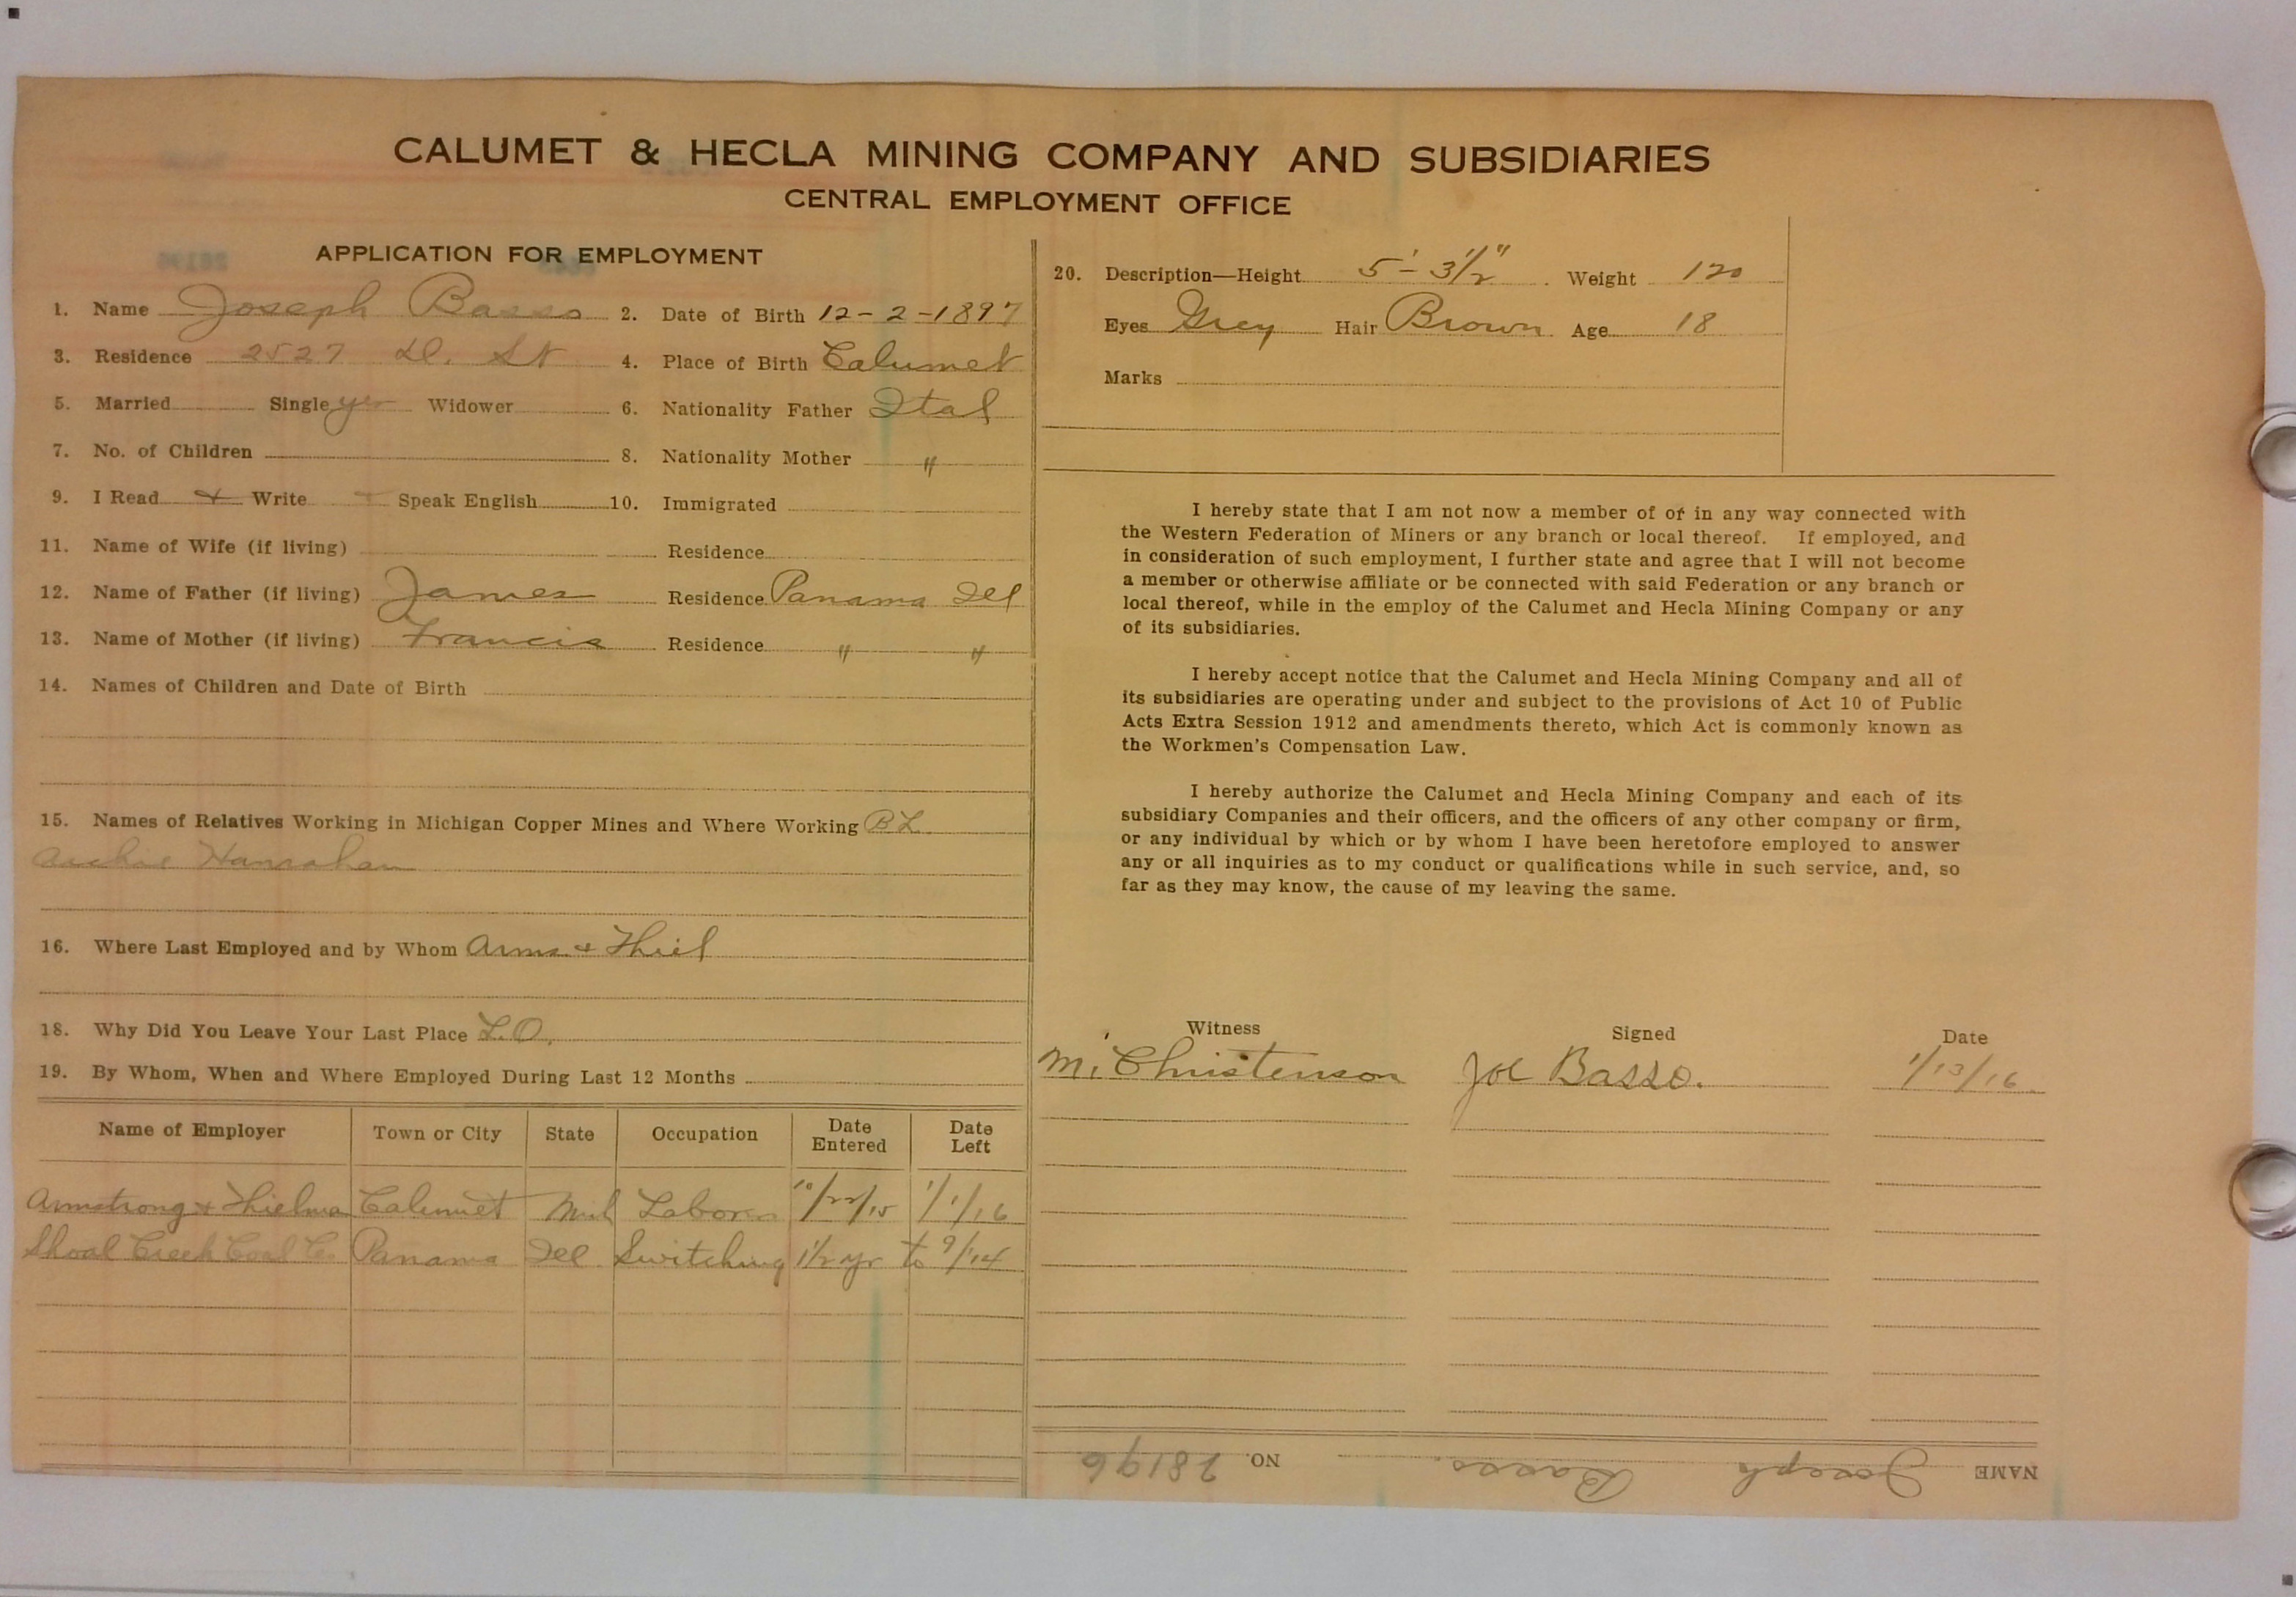 CALUMET & HECLA MINING COMPANY AND SUBSIDIARIES
CENTRAL EMPLOYMENT OFFICE
APPLICATION FOR EMPLOYMENT
1. Name Joseph Basso 2. Date of Birth 12-2-1897
3. Residence 2527 D. St 4. Place of Birth Calumet
5. Married Single yes Widower 6. Nationality Father Ital
7. No. of Children 8. Nationality Mother "
9. I Read + Write + Speak English 10. Immigrated
11. Name of Wife (if living) Residence
12. Name of Father (if living) James Residence Panama Ill
13. Name of Mother (if living) Francis Residence " "
14. Names of Children and Date of Birth
15. Names of Relatives Working in Michigan Copper Mines and Where Working B L
Archie Hanrahan
16. Where Last Employed and by Whom Arms + Thiel
18. Why Did You Leave Your Last Place L.O.
19. By Whom, When and Where Employed During Last 12 Months
Name of Employer Town or City State Occupation Date Entered Date Left
Armstrong + Thielman Calumet Mich Laborer 10/22/15 1/1/16
Shoal Creek Coal Co Panama Ill Switching 1 1/2 yr to 9/14
20. Description—Height 5'-3 1/2" Weight 120
Eyes Grey Hair Brown Age 18
Marks
I hereby state that I am not now a member of or in any way connected with
the Western Federation of Miners or any branch or local thereof. If employed, and
in consideration of such employment, I further state and agree that I will not become
a member or otherwise affiliate or be connected with said Federation or any branch or
local thereof, while in the employ of the Calumet and Hecla Mining Company or any
of its subsidiaries.
I hereby accept notice that the Calumet and Hecla Mining Company and all of
its subsidiaries are operating under and subject to the provisions of Act 10 of Public
Acts Extra Session 1912 and amendments thereto, which Act is commonly known as
the Workmen's Compensation Law.
I hereby authorize the Calumet and Hecla Mining Company and each of its
subsidiary Companies and their officers, and the officers of any other company or firm,
or any individual by which or by whom I have been heretofore employed to answer
any or all inquiries as to my conduct or qualifications while in such service, and, so
far as they may know, the cause of my leaving the same.
Witness Signed Date
M. Christenson Joe Basso. 1/13/16
NAME Joseph Basso NO. 28196